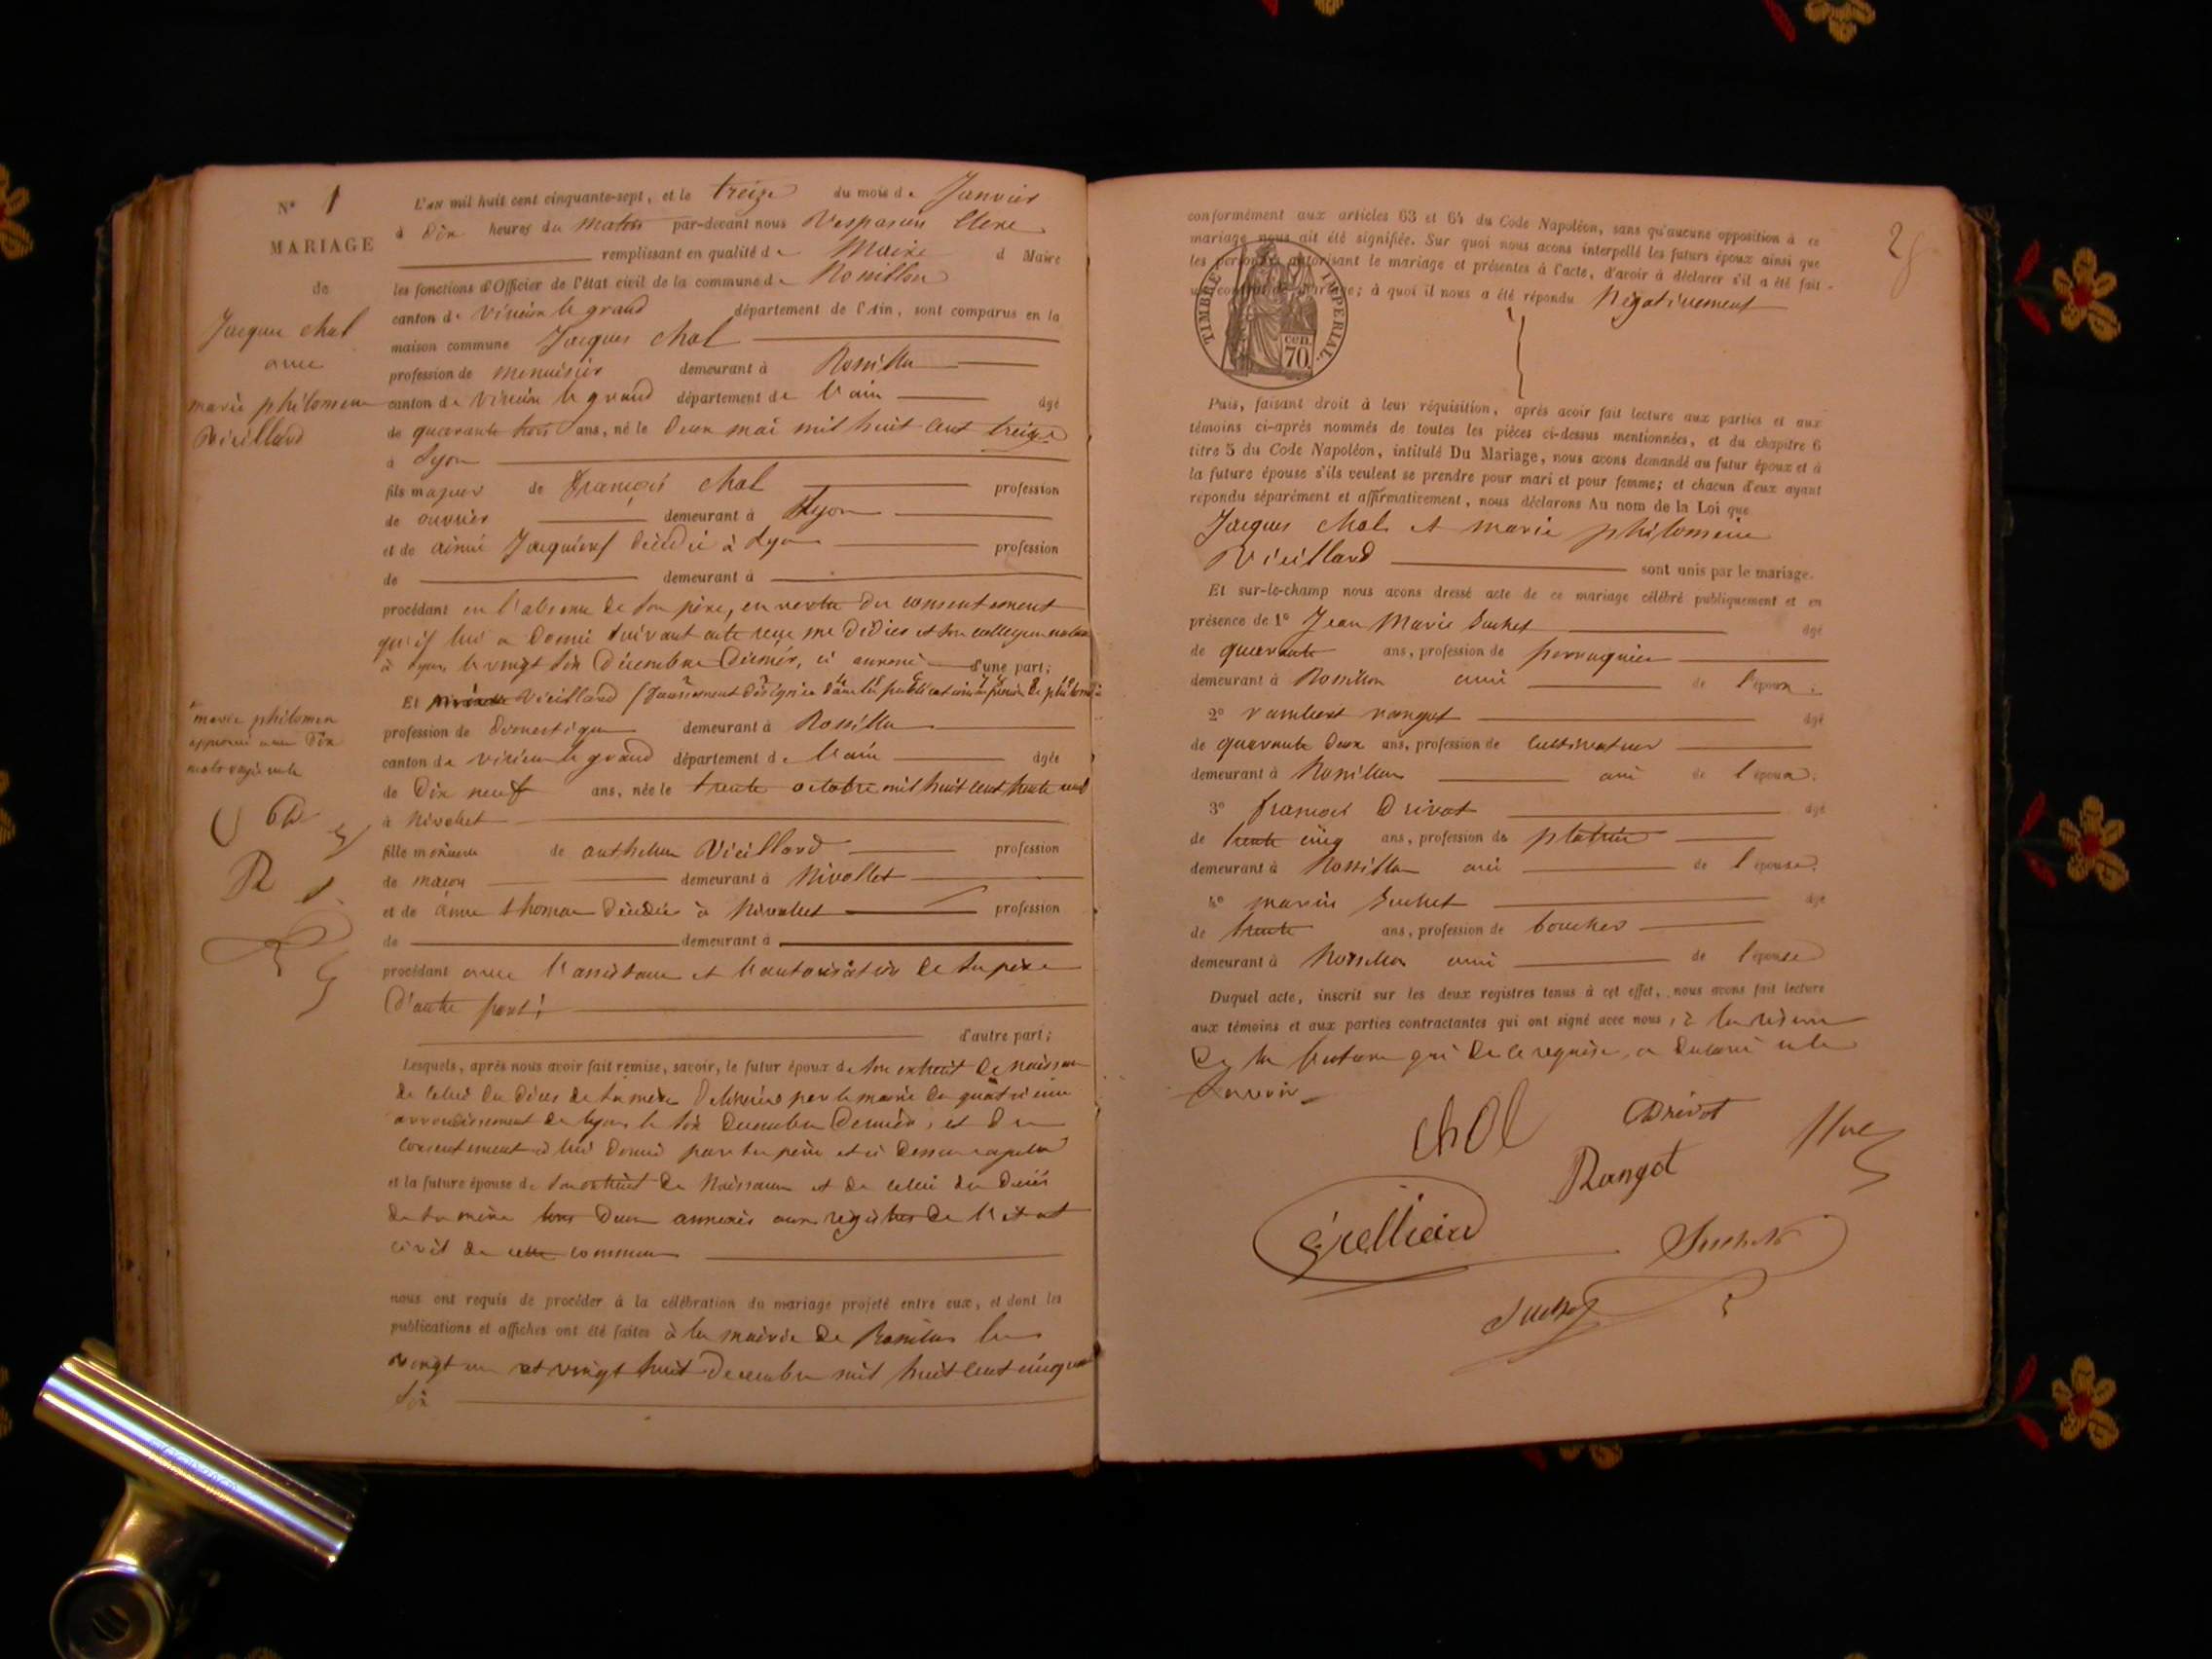 N° 1
MARIAGE
de
Jacques chol
avec
marie philomene
Vieillard
L'an mil huit cent cinquante-sept, et le treize du mois de Janvier
à dix heures du matin par-devant nous Vespasien
remplissant en qualité de Maire d Maire
les fonctions d'Officier de l'état civil de la commune de Rossillon
canton de virieu le grand département de l'Ain, sont comparus en la
maison commune Jacques chol
profession de menuisier demeurant à Rossillon
canton de virieu le grand département de l'ain âgé
de quarante trois ans, né le deux mai mil huit cent treize
à Lyon
fils majeur de françois chol profession
de ouvrier demeurant à Lyon
et de aimé décédée à Lyon profession
de demeurant à
procédant en l'absence de son père, en vertu du consentement
qu'il lui a donné suivant acte reçu me et son collegue notaires
à Lyon, le vingt six décembre dernier, ci annexé d'une part;
Et Vieillard (faussement désignée dans les publications
profession de domestique demeurant à Rossillon
canton de virieu le grand département de l'ain âgée
de dix neuf ans, née le trente octobre mil huit cent trente sept
à Nivollet
fille mineure de anthelme Vieillard profession
de maçon demeurant à Nivollet
et de anne thomas décédée à Nivollet profession
de demeurant à
procédant avec l'assistance et l'autorisation de son père
d'autre part;
d'autre part;
marie philomene
approuvé avec dix
mots rayés nuls
Lesquels, après nous avoir fait remise, savoir, le futur époux de son extrait de naissance
de celui du décès de sa mère délivrés par le maire du quatrieme
arrondissement de lyon le six decembre dernier, et du
consentement à lui donné par son père et ci dessus rapelé
et la future épouse de son extrait de Naissance et de celui du décès
de sa mère tous deux annexés aux registres de l'etat
civil de cette commune
nous ont requis de procéder à la célébration du mariage projeté entre eux, et dont les
publications et affiches ont été faites à la mairie de Rossillon les
vingt un et vingt huit decembre mil huit cent cinquante
six
28
conformément aux articles 63 et 64 du Code Napoléon, sans qu'aucune opposition à ce
mariage nous ait été signifiée. Sur quoi nous avons interpellé les futurs époux ainsi que
les personnes autorisant le mariage et présentes à l'acte, d'avoir à déclarer s'il a été fait
un contrat de mariage; à quoi il nous a été répondu Négativement
TIMBRE IMPERIAL.
cen.
70.
Puis, faisant droit à leur réquisition, après avoir fait lecture aux parties et aux
témoins ci-après nommés de toutes les pièces ci-dessus mentionnées, et du chapitre 6
titre 5 du Code Napoléon, intitulé Du Mariage, nous avons demandé au futur époux et à
la future épouse s'ils veulent se prendre pour mari et pour femme; et chacun d'eux ayant
répondu séparément et affirmativement, nous déclarons Au nom de la Loi que
Jacques chol et marie philomene
Vieillard sont unis par le mariage.
Et sur-le-champ nous avons dressé acte de ce mariage célébré publiquement et en
présence de 1° Jean Marie Suchet âgé
de quarante ans, profession de perruquier
demeurant à Rossillon ami de l'époux.
2° rambert rangot âgé
de quarante deux ans, profession de cultivateur
demeurant à Rossillon ami de l'époux.
3° françois Drivot âgé
de trente cinq ans, profession de platrier
demeurant à Rossillon ami de l'épouse.
4° marin Suchet âgé
de trente ans, profession de boucher
demeurant à Rossillon ami de l'épouse
Duquel acte, inscrit sur les deux registres tenus à cet effet, nous avons fait lecture
aux témoins et aux parties contractantes qui ont signé avec nous, à la réserve
de la future qui de ce requise, a déclaré ne le
savoir
chol Drivot
Rangot
Suchet
Suchet